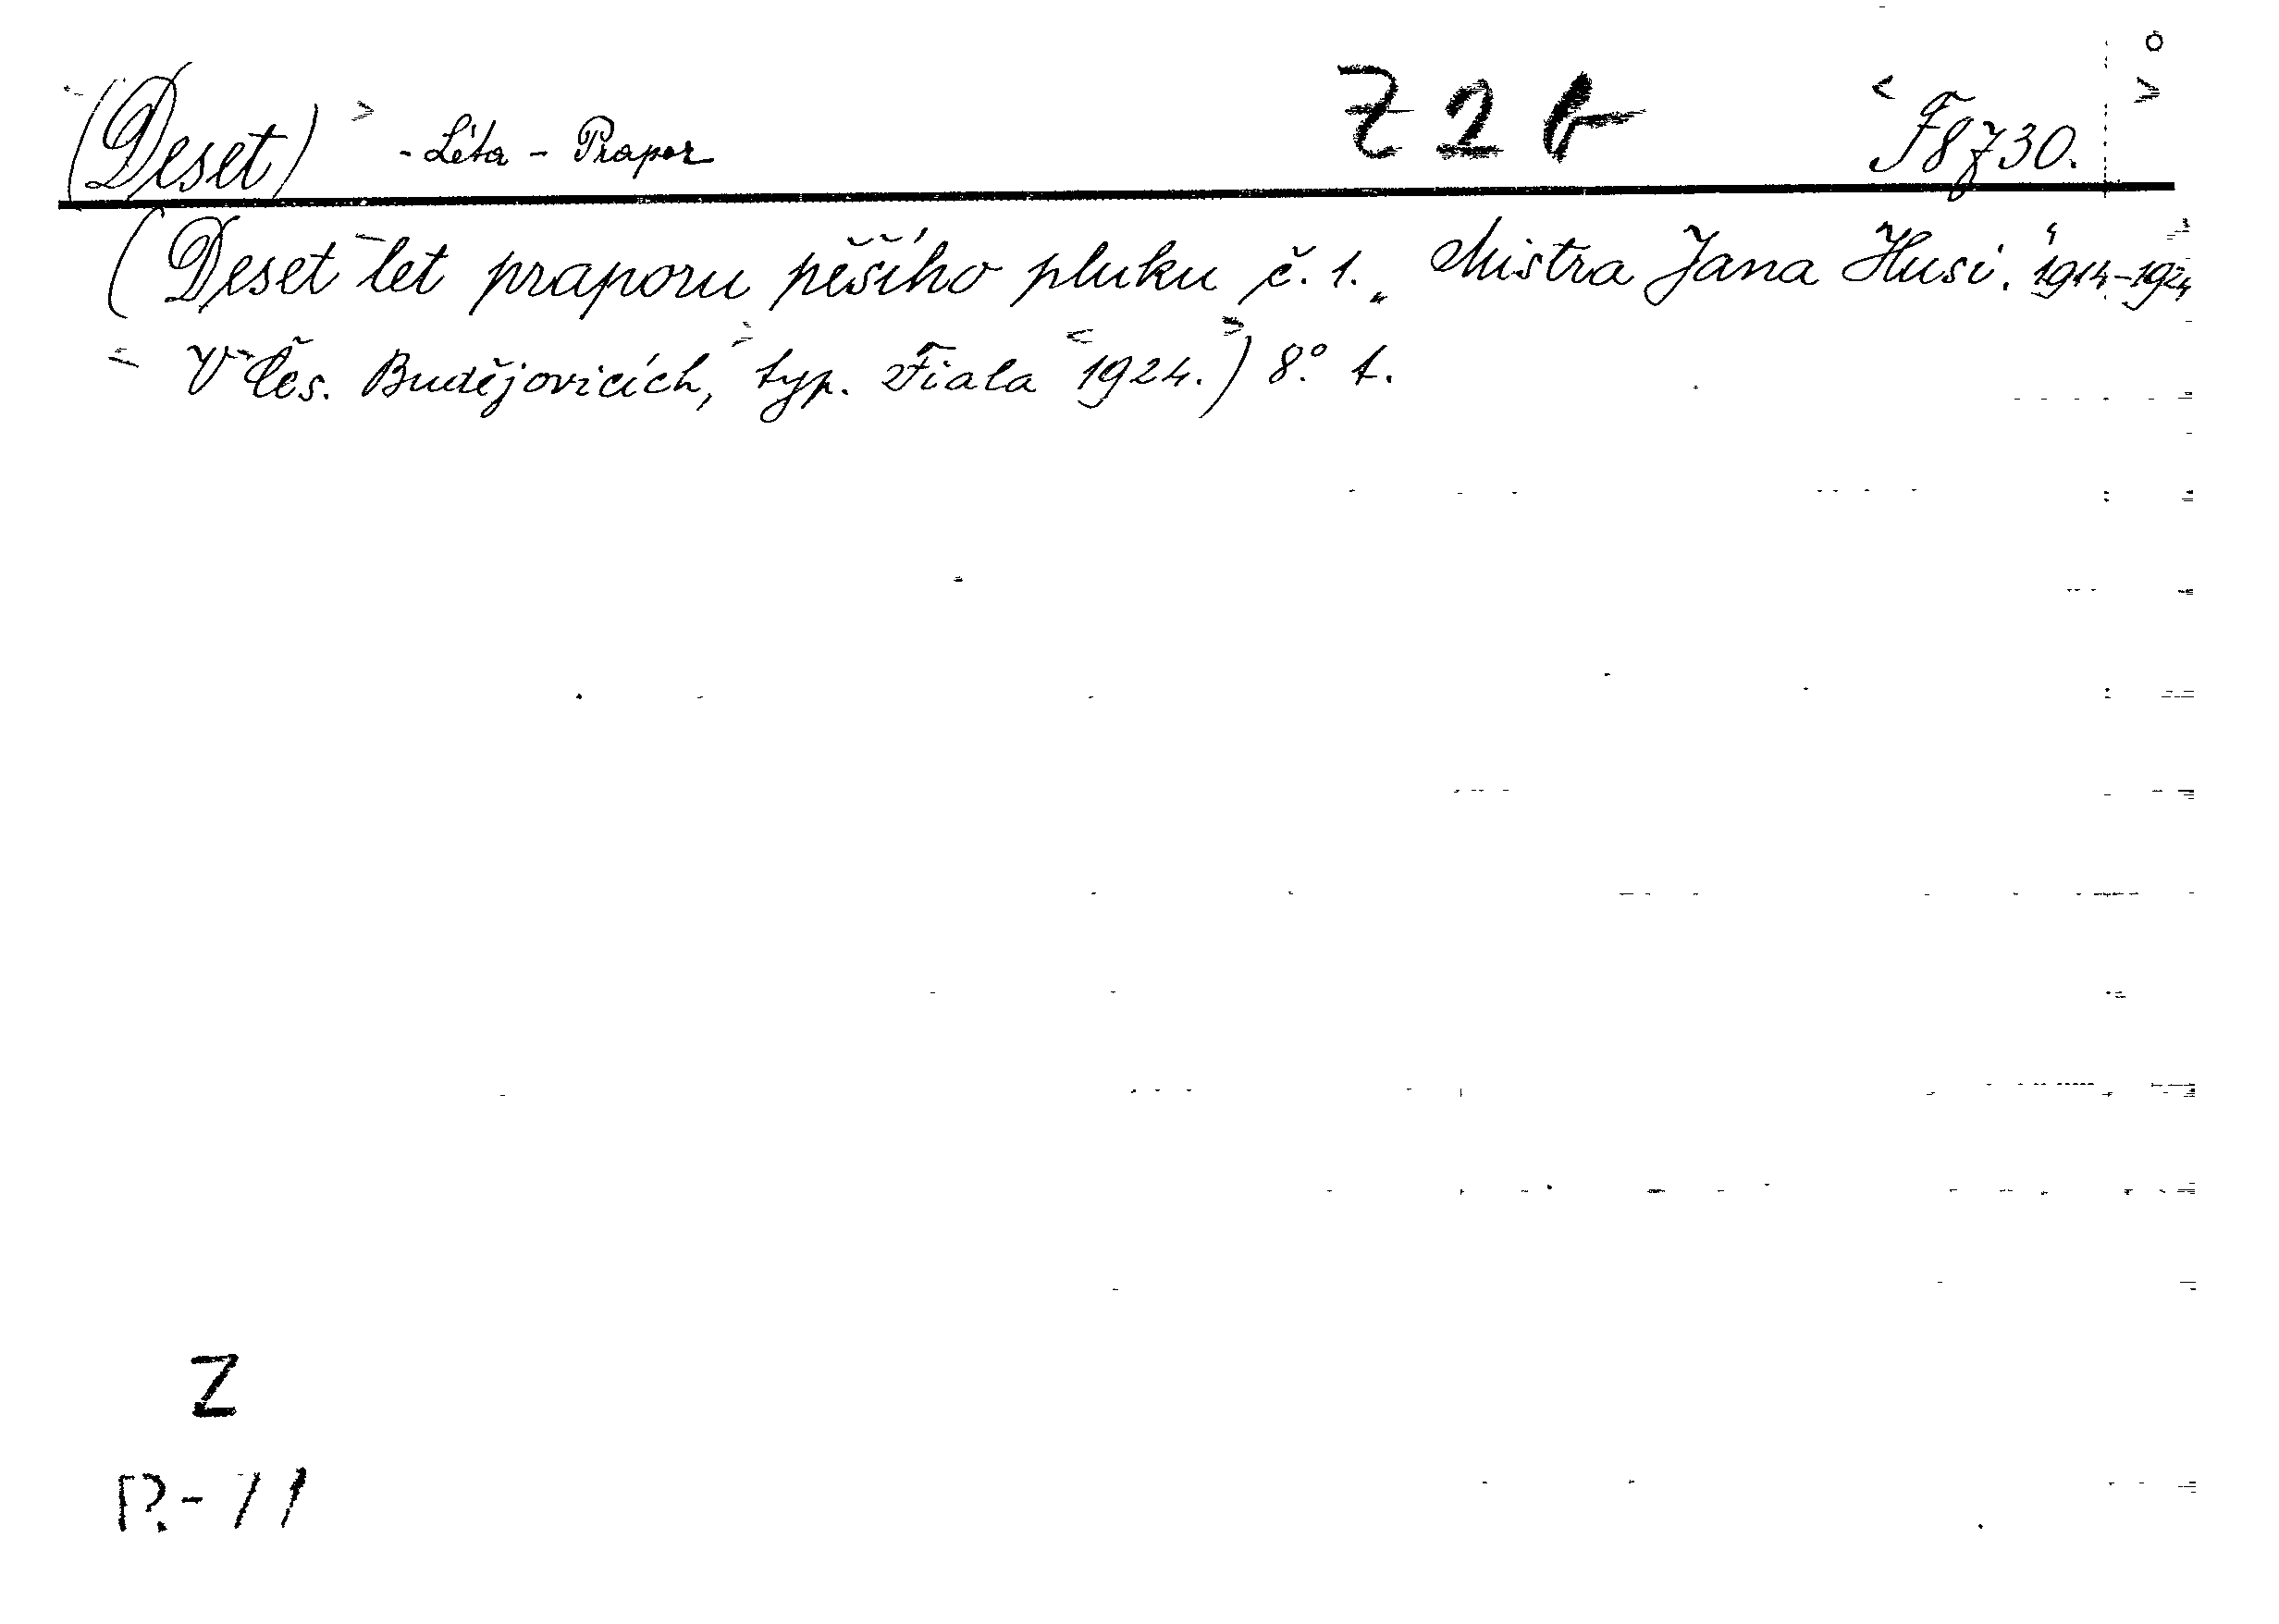 (Deset) - Léta - Prapor Z 2 b F8730.
(Deset let praporu pěšího pluku č. 1. „Mistra Jana Husi.“ 1914-1924
V Čes. Budějovicích, typ. Fiala 1924.) 8.° 1.
Z
R-11